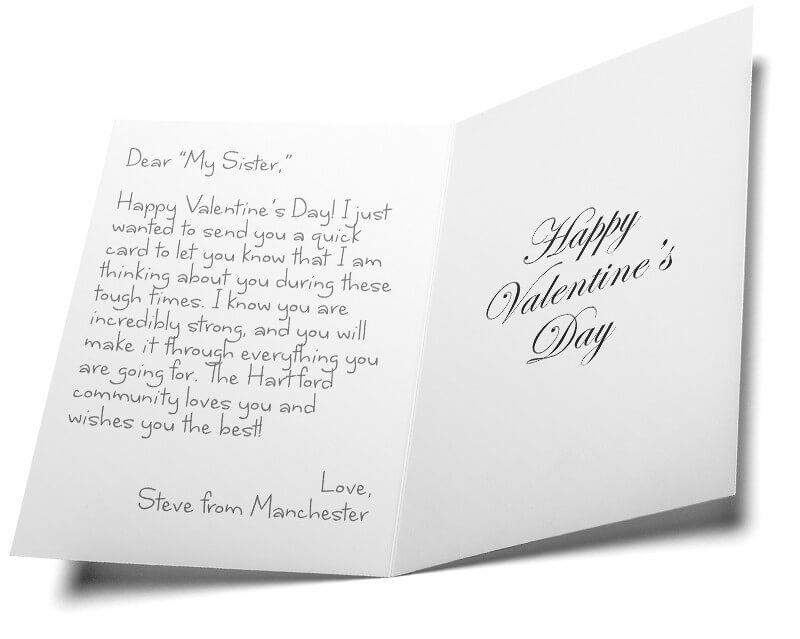 Dear "My Sister,"
Happy Valentine's Day! I just
wanted to send you a quick
card to let you know that I am
thinking about you during these
tough times. I know you are
incredibly strong, and you will
make it through everything you
are going for. The Hartford
community loves you and
wishes you the best!
Love,
Steve from Manchester
Happy
Valentine's
Day